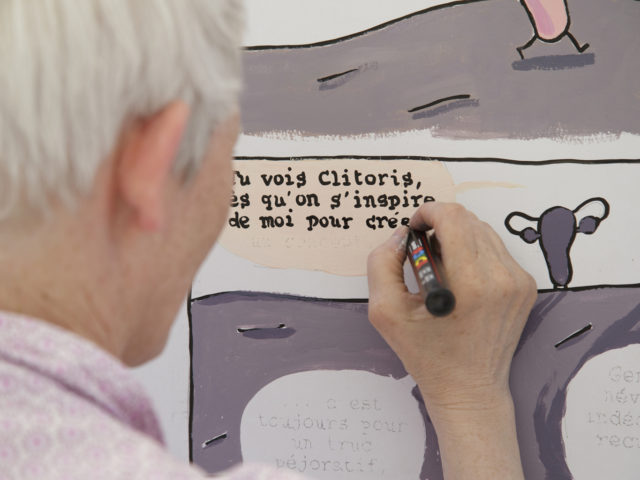 Tu vois Clitoris,
ès qu'on s'inspire
de moi pour crée
un concept
... a est
toujours pour
un truc
péjoratif.
Gen
név
indéc
recu